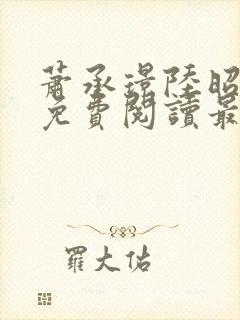 蕭承璟陸昭
免費閱讀最
羅大佑